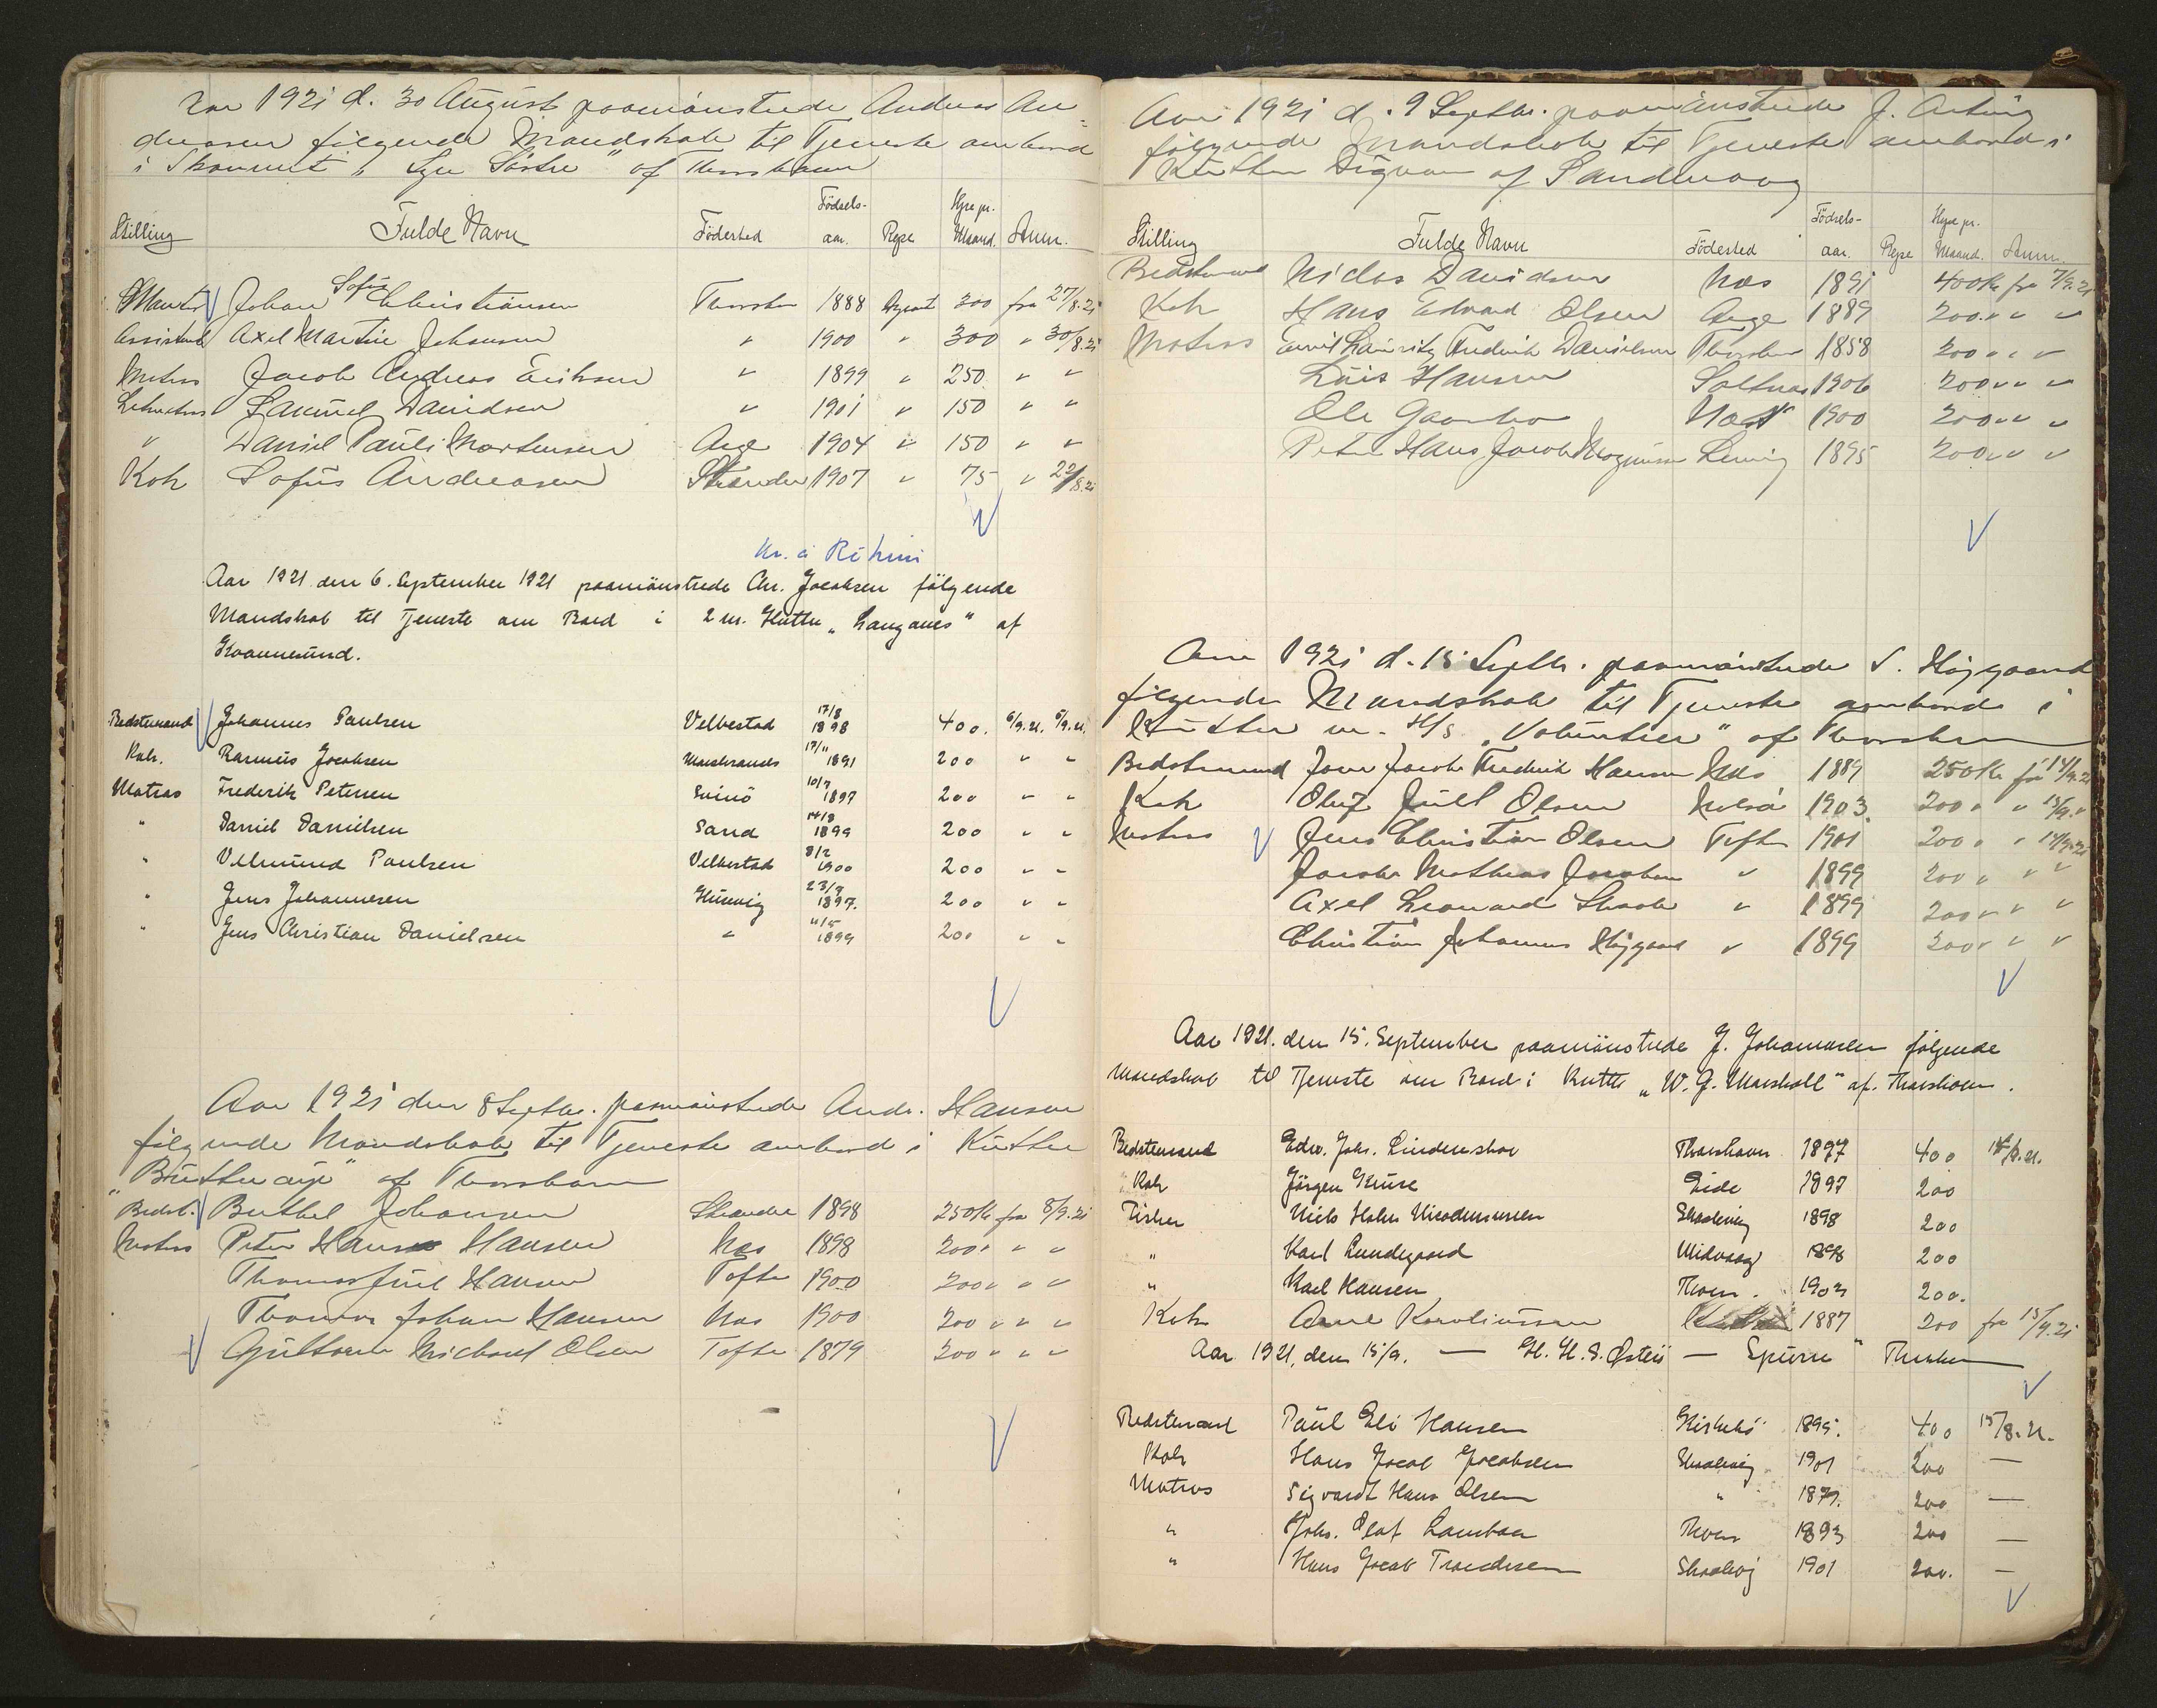 Aar 1921 d. 30 August paamönstrede Andreas An-
dreasen følgende Mandskab til Tjeneste ombord
i Skonnert "Syv Söstre" af Thorshavn
Stilling Fulde Navn Födested Födsels-aar. Rejse Hyre pr. Maaned. Anm.
Johan Sofus Christiansen Thorshn 1888 300 fra 27/8.21
Assistent Axel Martin Johansen " 1900 " 300 " 30/8.21
Matros Jacob Andreas Eriksen " 1899 " 250 " "
Letmatros Samuel Davidsen " 1901 " 150 " "
" Daniel Pauli Mortensen 1904 " 150 " "
Kok Sofus Andreasen Strender 1907 " 75 " 22/8.21
Aar 1921 den 6. September 1921 paamönstrede Chr. Jacobsen fölgende
Mandskab til Tjeneste om Bord i 2 m. Kutter "Langanes" af
Kvannesund.
Bedstemand Johannes Paulsen Velbestad 17/8 1898 400. 6/9.21. 5/9.21.
Kok. Rasmus Jacobsen 17/11 1891 200 " "
Matros Frederik Petersen Svinö 10/7 1897 200 " "
" Daniel Danielsen Sand 14/8 1899 200 " "
" Vilmund Paulsen Velbestad 8/2 1900 200 " "
" Jens Johannesen Husevig 23/7 1897. 200 " "
" Jens Christian Danielsen " 11/5 1899 200 " "
Aar 1921 den 8 Septbr. paamönstrede Andr. Hansen
følgende Mandskab til Tjeneste ombord i Kutter
"Buttercup" af Thorshavn
Bedst. Berthel Johansen Strender 1898 250 Kr fra 8/9.21
Matros Peter Hans Hansen Næs 1898 200 " " "
Thomas Juul Hansen Tofte 1900 200 " " "
Thomas Johan Hansen Næs 1900 200 " " "
Guttorm Michael Olsen Tofte 1879 200 " " "
Aar 1921 d. 9 Septbr. paamönstrede J. Arting
følgende Mandskab til Tjeneste ombord i
Kutter Sigvan af Sandevaag
Stilling Fulde Navn Födested Födsels-aar. Rejse Hyre pr. Maaned. Anm.
Bedstemand Niclas Davidsen Næs 1891 400 Kr fra 7/9.21
Kok Hans Edvard Olsen 1889 200 " " "
Matros Emil Lauritz Fredrik Danielsen Thorshn 1858 200 " " "
Luis Hansen Saltnæs 1906 200 " " "
Ole Gaardbo Næs 1900 200 " " "
Peter Hans Jacob Magnussen 1895 200 " " "
Aar 1921 d. 15 Septbr. paamönstrede S. Højgaard
følgende Mandskab til Tjeneste ombord i
Kutter m. H/S. "Voluntier" af Thorshavn
Bedstemand Joen Jacob Fredrik Hansen Næs 1889 250 Kr fra 14/9.21
Kok Oluf Juul Olsen Nolsø 1903. 200 " " 15/9."
Matros Jens Christian Olsen Tofte 1901 200 " " 14/9.21
Jacob Mathias Jacobsen " 1899 200 " " "
Axel Leonard Skaale " 1899 200 " " "
Christian Johannes Højgaard " 1899 200 " " "
Aar 1921. den 15. September paamönstrede J. Johannesen følgende
Mandskab til Tjeneste om Bord i Kutter "W. J. Marshall" af Thorshavn.
Bedstemand Edw. Johs. Lindenskov Thorshavn 1897 400 14/9.21.
Kok Jörgen Kruse Eide 1897 200
Fisker Niels Nicodemussen Skaalevig 1898 200
" Karl Lundegaard Midvaag 1898 200
" Karl Hansen Thorsn. 200.
Kok Arne Karoliussen 1887 200 fra 15/9.21
Aar 1921, den 15/9. — H. H. S. Østerö — "Spurn" Thorshavn
Bedstemand Paul Eli Hansen Kirkebö 1895. 400 15/8.21.
Kok Hans Jacob Jacobsen Skaalevig 1901 200 —
Matros Sigvardt Hans Olsen " 1879. 200 —
" Johs. Olaf Lamhauge Thorsn 1893 200 —
" Hans Jacob Trondesen Skaalevig 1901 200. —